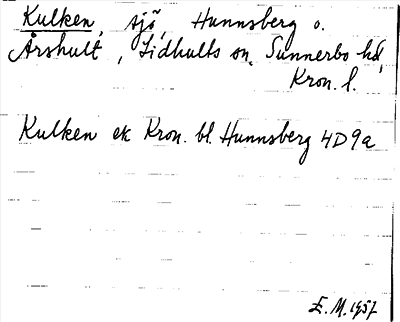 Kulken, sjö, Hunnsberg o.
Årshult, Lidhults sn, Sunnerbo hd,
Kron. l.
Kulken ek Kron. bl. Hunnsberg 4D9a
E. M. 1957